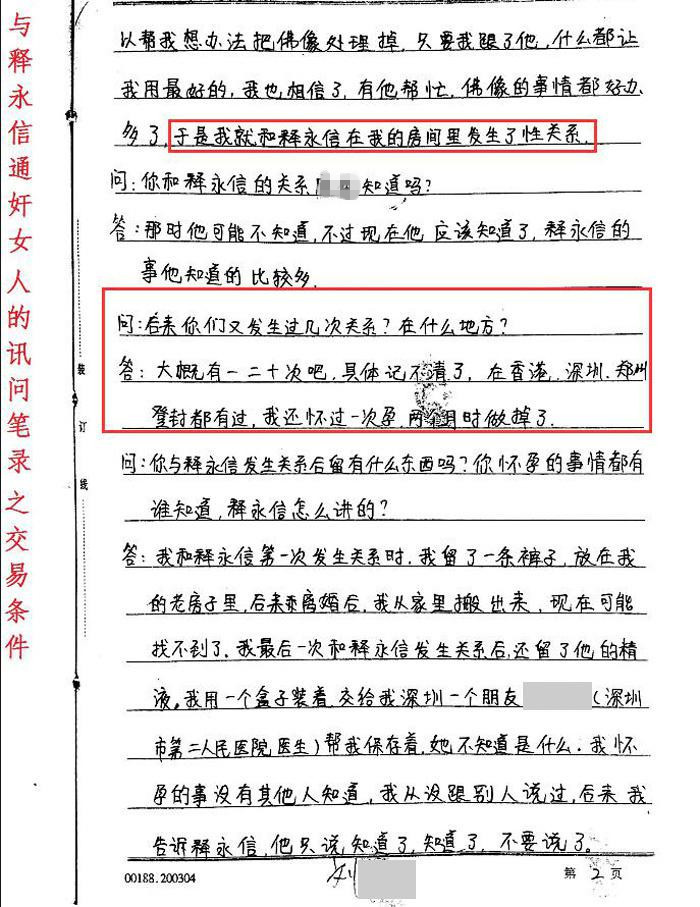 与释永信通奸女人的讯问笔录之交易条件
以帮我想办法把佛像处理掉，只要我跟了他，什么都让
我用最好的，我也相信了，有他帮忙，佛像的事情都好办
多了，于是我就和释永信在我的房间里发生了性关系，
问：你和释永信的关系 知道吗？
答：那时他可能不知道，不过现在他应该知道了，释永信的
事他知道的比较多．
问：后来你们又发生过几次关系？在什么地方？
答：大概有一二十次吧，具体记不清了，在香港．深圳．郑州
登封都有过，我还怀过一次孕，两个月时做掉了．
问：你与释永信发生关系后留有什么东西吗？你怀孕的事情都有
谁知道，释永信怎么讲的？
答：我和释永信第一次发生关系时，我留了一条裤子，放在我
的老房子里，后来 离婚后，我从家里搬出来，现在可能
找不到了，我最后一次和释永信发生关系后，还留了他的精
液，我用一个盒子装着 交给我深圳一个朋友 （深圳
市第二人民医院医生）帮我保存着，她不知道是什么．我怀
孕的事没有其他人知道，我从没跟别人说过，后来我
告诉释永信，他只说知道了，知道了，不要说了。
装
订
线
00188.200304
第 2 页